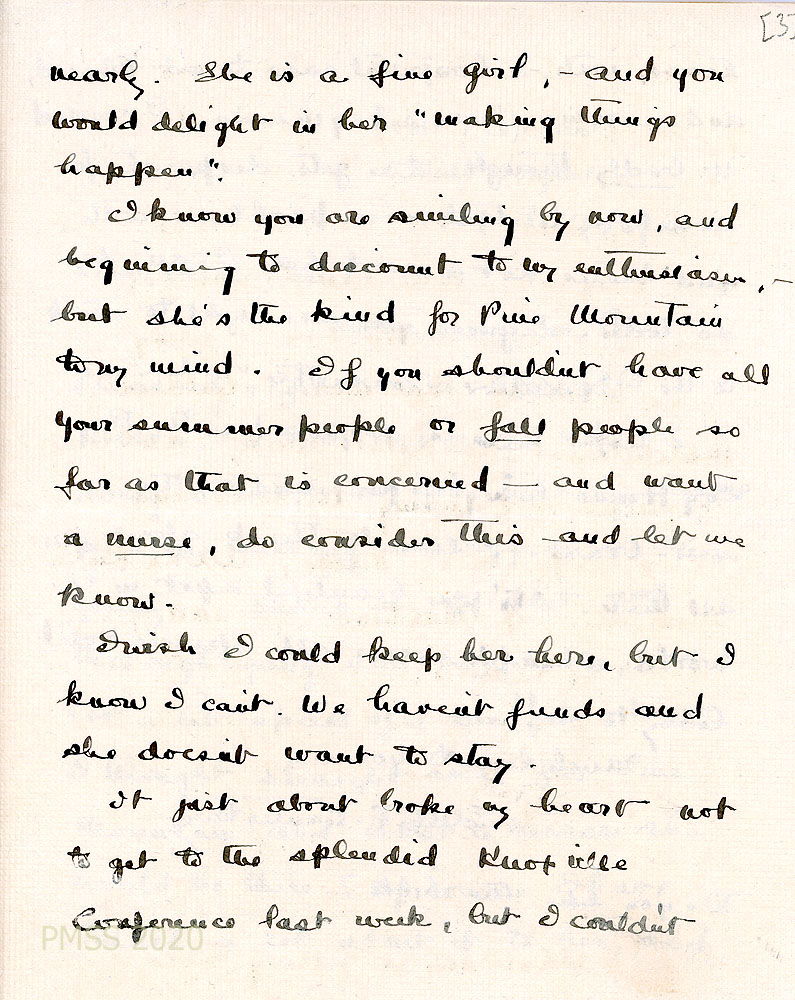 [3]
nearly. She is a fine girl, - and you
would delight in her "making things
happen".
I know you are smiling by now, and
beginning to discount to my enthusiasm, -
but she's the kind for Pine Mountain
to my mind. If you shouldn't have all
your summer people or fall people so
far as that is concerned - and want
a nurse, do consider this - and let me
know.
I wish I could keep her here, but I
know I can't. We haven't funds and
she doesn't want to stay.
It just about broke my heart not
to get to the splendid Knoxville
Conference last week, but I couldn't
PMSS 2020